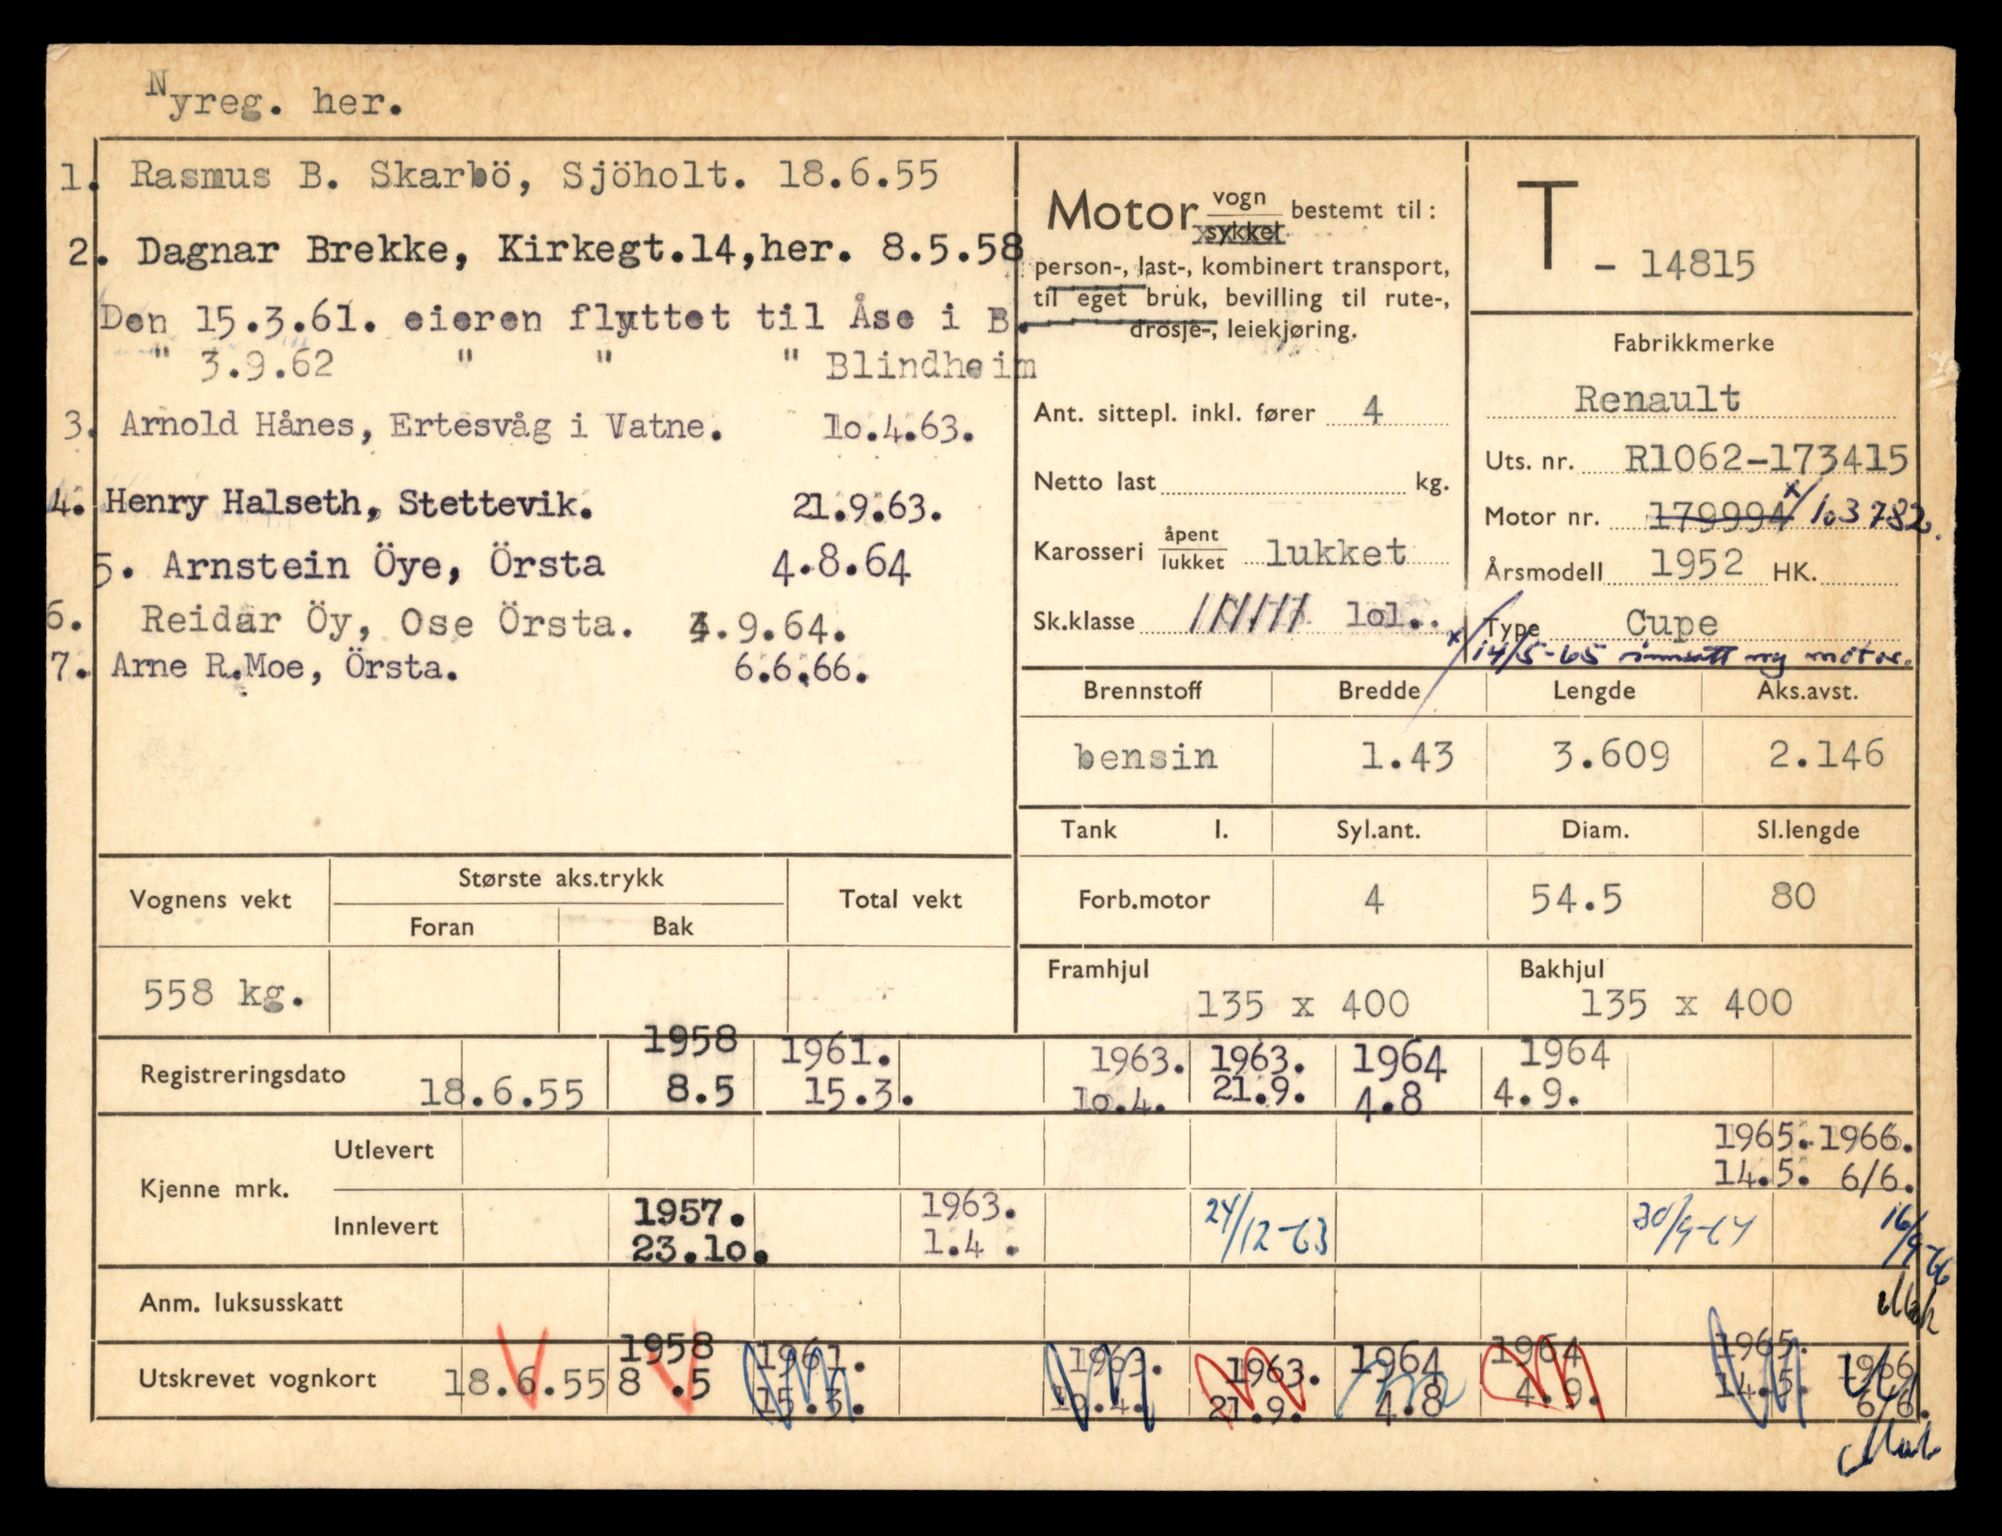 Nyreg. her.
1. Rasmus B. Skarbö, Sjöholt. 18.6.55
2. Dagnar Brekke, Kirkegt.14,her. 8.5.58
Den 15.3.61. eieren flyttet til Åse i B.
" 3.9.62 " " " Blindheim
3. Arnold Hånes, Ertesvåg i Vatne. 10.4.63.
4. Henry Halseth, Stettevik. 21.9.63.
5. Arnstein Öye, Örsta 4.8.64
6. Reidar Öy, Ose Örsta. 4.9.64.
7. Arne R.Moe, Örsta. 6.6.66.
Motor vogn sykkel bestemt til:
person-, last-, kombinert transport,
til eget bruk, bevilling til rute-,
drosje-, leiekjøring.
Ant. sittepl. inkl. fører 4
Netto last kg.
Karosseri åpent lukket lukket
Sk.klasse lol..
T - 14815
Fabrikkmerke
Renault
Uts. nr. R1062-173415
Motor nr. 179994 x/ 103782.
Årsmodell 1952 HK.
Type Cupe
x/ 14/5-65 innsatt ny motor.
Brennstoff Bredde Lengde Aks.avst.
bensin 1.43 3.609 2.146
Tank l. Syl.ant. Diam. Sl.lengde
Forb.motor 4 54.5 80
Framhjul Bakhjul
135 x 400 135 x 400
Vognens vekt Største aks.trykk Total vekt
Foran Bak
558 kg.
1958 1961. 1963. 1963. 1964 1964
Registreringsdato 18.6.55 8.5 15.3. 10.4. 21.9. 4.8 4.9.
Kjenne mrk.
Utlevert 1965. 1966.
14.5. 6/6.
Innlevert 1957. 1963. 24/12-63 30/9-64 16/9-66
23.10. 1.4 .
Anm. luksusskatt
1958 1961. 1963. 1963. 1964 1964 1965. 1966
Utskrevet vognkort 18.6.55 8 .5 15.3. 10.4. 21.9. 4.8 4.9. 14.5. 6/6.